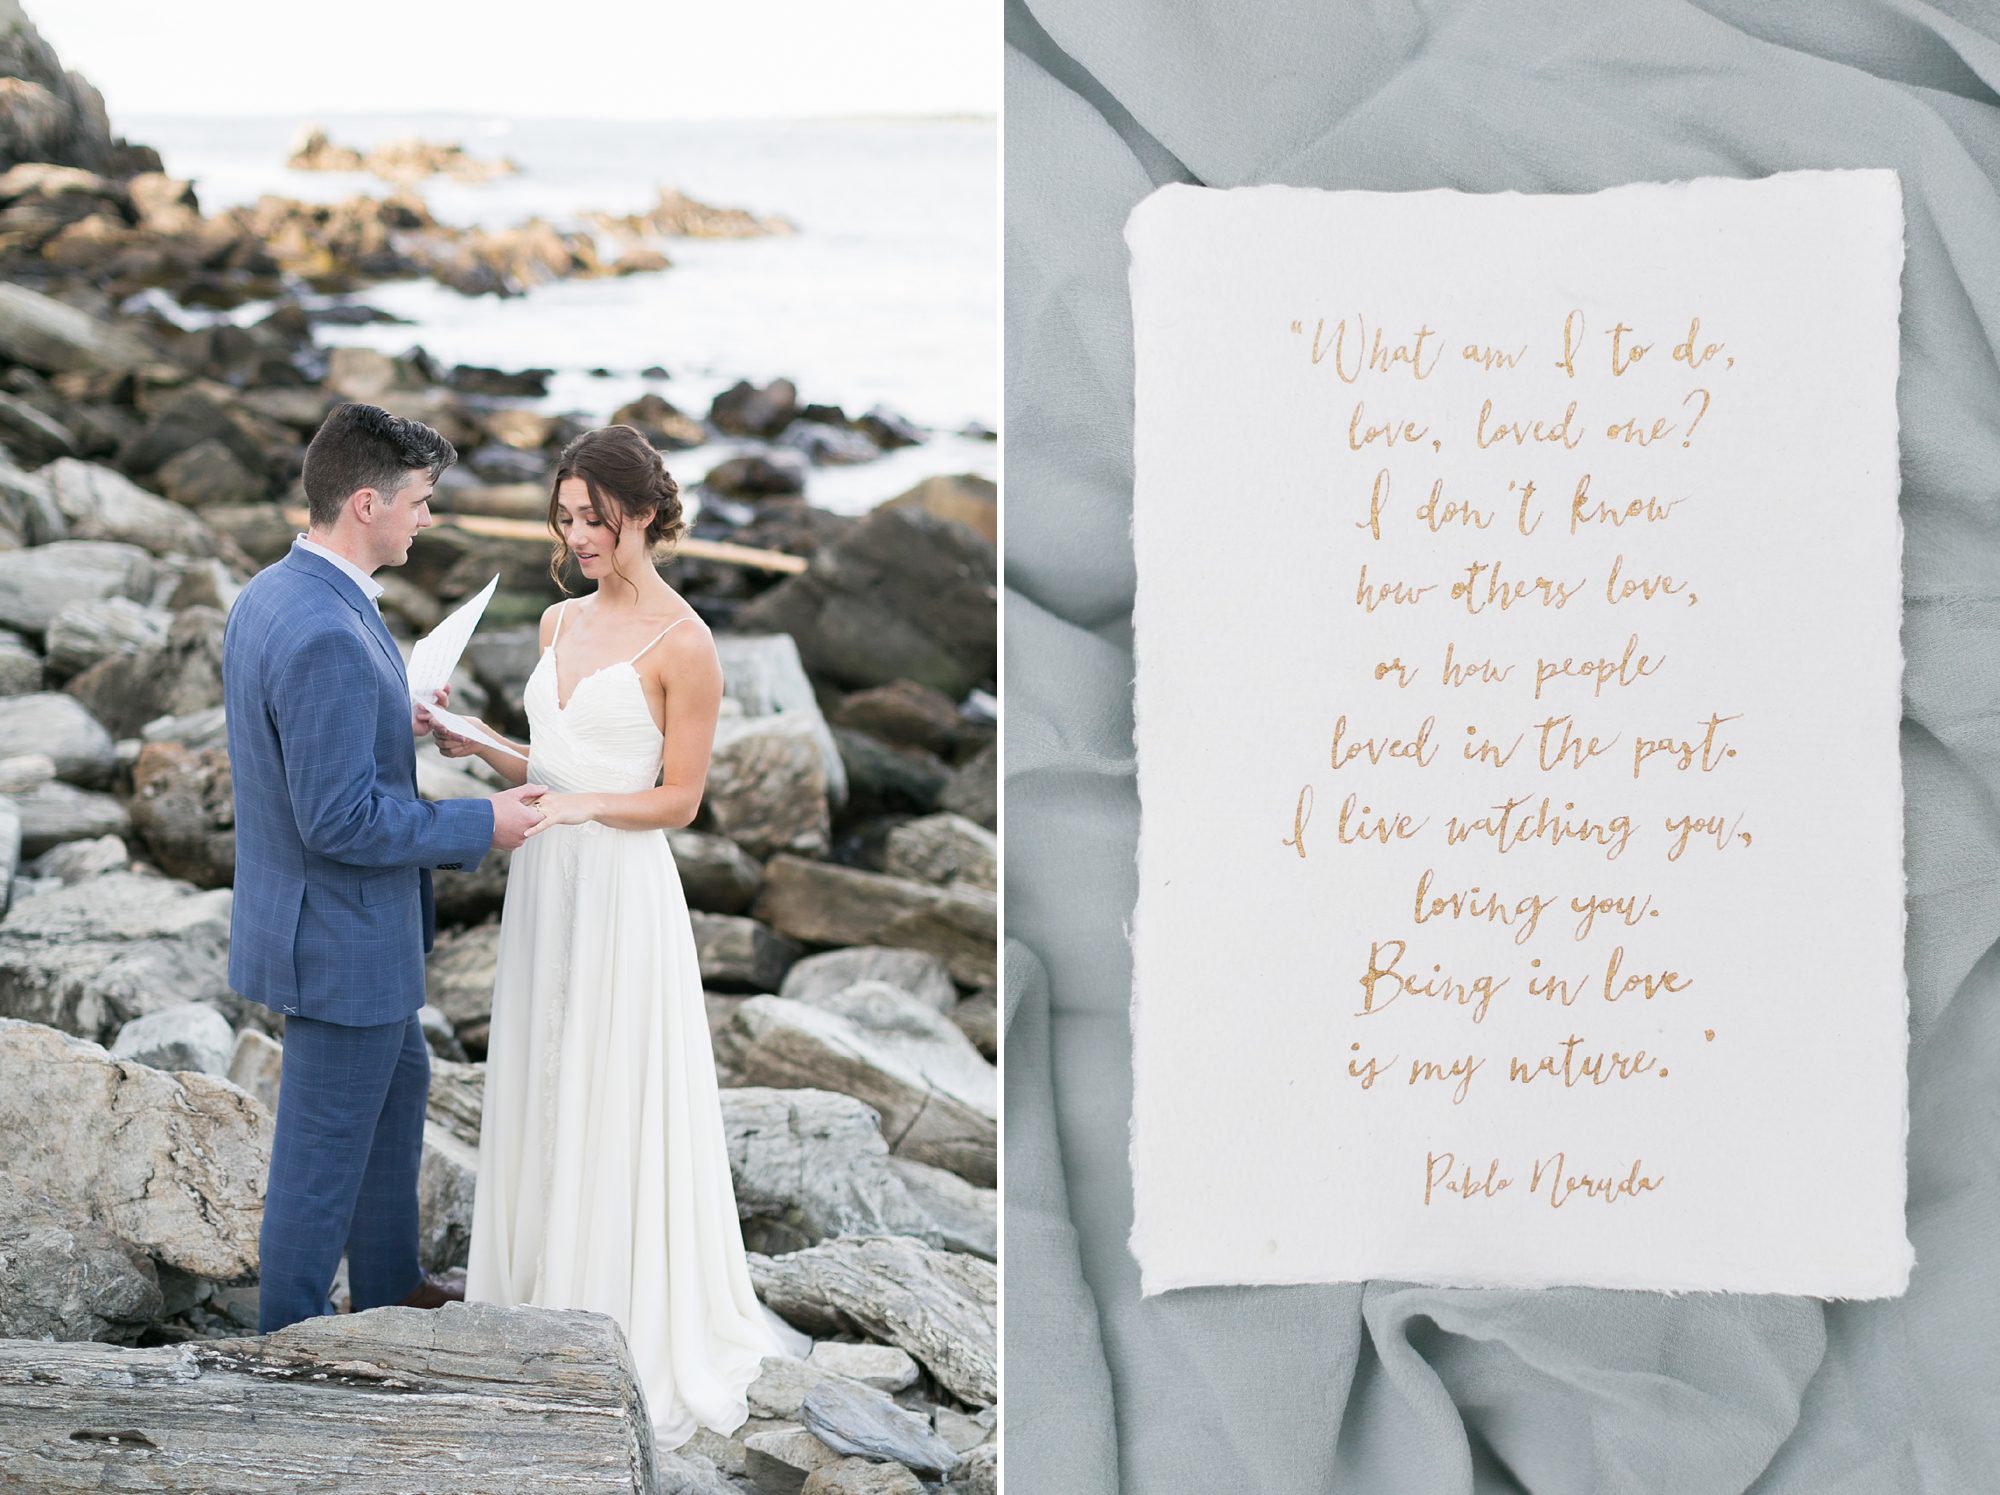 "What am I to do,
love, loved one?
I don't know
how others love,
or how people
loved in the past.
I live watching you,
loving you.
Being in love
is my nature."
Pablo Neruda